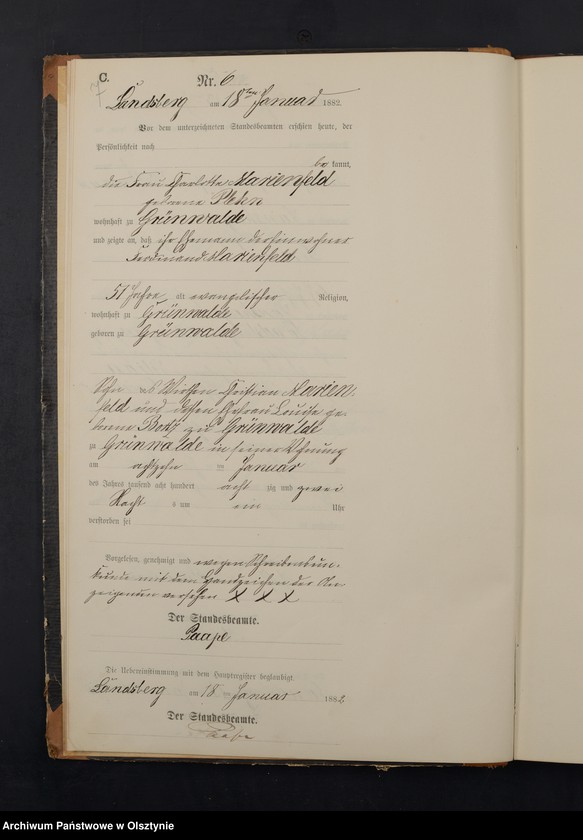 C.
Nr. 6
Landsberg am 18ten Januar 1882.
Vor dem unterzeichneten Standesbeamten erschien heute, der
Persönlichkeit nach
bekannt,
die Frau Charlotte Marienfeld
geborene Plehn
wohnhaft zu Grünwalde
und zeigte an, daß ihr Ehemann der Einwohner
Ferdinand Marienfeld
51 Jahre alt evangelischer Religion,
wohnhaft zu Grünwalde
geboren zu Grünwalde
Sohn des Wirthen Christian Marien-
feld und dessen Ehefrau Louise ge-
borene zu Grünwalde
zu Grünwalde in seiner Wohnung
am achtzehn ten Januar
des Jahrs tausend acht hundert acht zig und zwei
Nachts um ein Uhr
verstorben sei
Vorgelesen, genehmigt und wegen Schreibensun-
kunde mit dem Handzeichen der An-
zeigenden versehen X X X
Der Standesbeamte.
Paape
Die Uebereinstimmung mit dem Hauptregister beglaubigt.
Landsberg am 18 ten Januar 1882.
Der Standesbeamte.
Paape
Archiwum Państwowe w Olsztynie